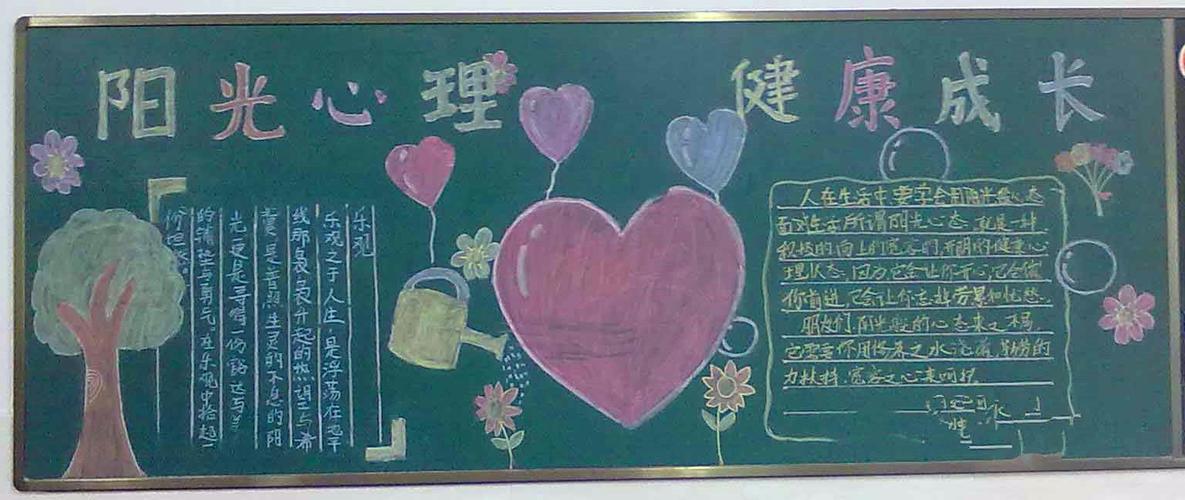 阳光心理 健康成长
乐观
乐观之于人生,是浮荡在地平
线那是最升起的热望与希
冀,是普照生灵的不息的阳
光,更是寻得一份豁达与
的铺垫与勇气。在乐观中拾起一
份坦然。
人在生活中,要学会用阳光般心态
面对生活所谓阳光心态,就是一种
积极的向上的宽容的开朗的健康心
理状态。因为它会让你开心,它会催
你前进,它会让你忘掉劳累和忧愁。
朋友们,阳光般的心态来之不易,
它需要你用 之水浇灌, 劳的
力 ,宽容之心来呵护。